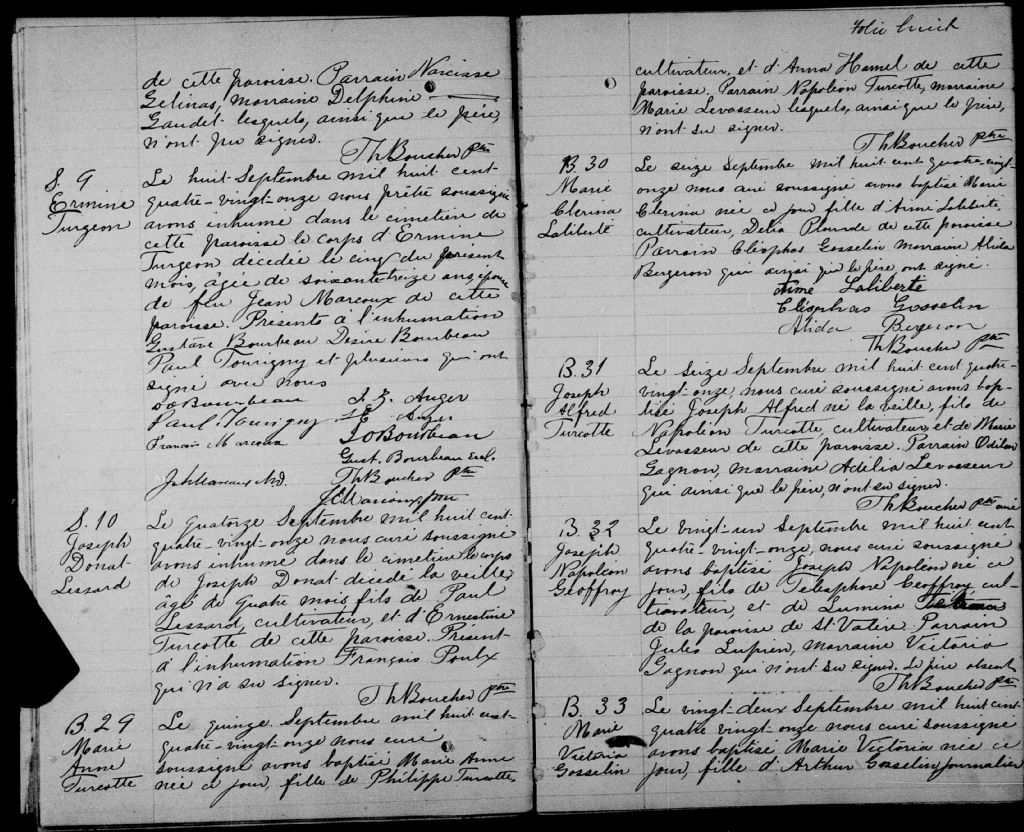 de cette paroisse. Parrain Narcisse
Gelinas, marraine Delphine
Gaudet lesquels, ainsi que le père,
n'ont pu signer.
Th Boucher ptre
S. 9
Ermine
Turgeon
Le huit Septembre mil huit cent
quatre-vingt-onze nous prêtre soussigné
avons inhumé dans le cimetière de
cette paroisse le corps d'Ermine
Turgeon décedée le cinq du présent
mois, âgée de soixante treize ans, épouse
de feu Jean Marcoux de cette
paroisse. Présents à l'inhumation
Gustave Bourbeau Désiré Bourbeau
Paul Tourigny et plusieurs qui ont
signé avec nous
D O Bourbeau
Paul Tourigny
Francis Marcoux
J. E. Auger
E. Auger
D O Bourbeau
Gust. Bourbeau Eccl.
Th Boucher ptre
S. 10
Joseph
Donat
Lessard
Le quatorze Septembre mil huit cent
quatre-vingt-onze nous curé soussigné
avons inhumé dans le cimetière le corps
de Joseph Donat décedé la veille,
âgé de quatre mois fils de Paul
Lessard, cultivateur, et d'Ernestine
Turcotte de cette paroisse. Présent
à l'inhumation François Poulx
qui n'a su signer.
Th Boucher ptre
B. 29
Marie
Anne
Turcotte
Le quinze Septembre mil huit cent-
quatre-vingt-onze nous curé
soussigné avons baptisé Marie Anne
née ce jour, fille de Philippe Turcotte,
folio huit
cultivateur, et d'Anna Hamel de cette
paroisse. Parrain Napoléon Turcotte, marraine
Marie Levasseur lesquels, ainsi que le père,
n'ont su signer.
Th Boucher ptre
B. 30
Marie
Clerina
Laliberté
Le seize Septembre mil huit cent quatre-vingt-
onze nous curé soussigné avons baptisé Marie
Clerina née ce jour fille d'Aimé Laliberté,
cultivateur, Délia Plourde de cette paroisse
Parrain Cléophas Gosselin marraine Alida
Bergeron qui ainsi que le père, ont signé.
Aimé Laliberté
Cléophas Gosselin
Alida Bergeron
Th Boucher ptre
B. 31
Joseph
Alfred
Turcotte
Le Seize Septembre mil huit cent quatre-
vingt-onze, nous curé soussigné avons bap-
tisé Joseph Alfred né la veille, fils de
Napoléon Turcotte cultivateur, et de Marie
Levasseur de cette paroisse. Parrain Odilon
Gagnon, marraine Adélia Levasseur
qui ainsi que le père, n'ont su signer.
Th Boucher ptre curé
B. 32
Joseph
Napoléon
Geoffroy
Le vingt-un Septembre mil huit cent
quatre-vingt-onze, nous curé soussigné
avons baptisé Joseph Napoléon né ce
jour, fils de Télésphore Geoffroy, cul-
tivateur, et de Lumina
de la paroisse de St Valère. Parrain
Jules Lupien, marraine Victoria
Gagnon qui n'ont su signer. Le père absent
Th Boucher ptre
B. 33
Marie
Victoria
Gosselin
Le vingt-deux Septembre mil huit cent
quatre vingt-onze nous curé soussigné
avons baptisé Marie Victoria née ce
jour, fille d'Arthur Gosselin, journalier